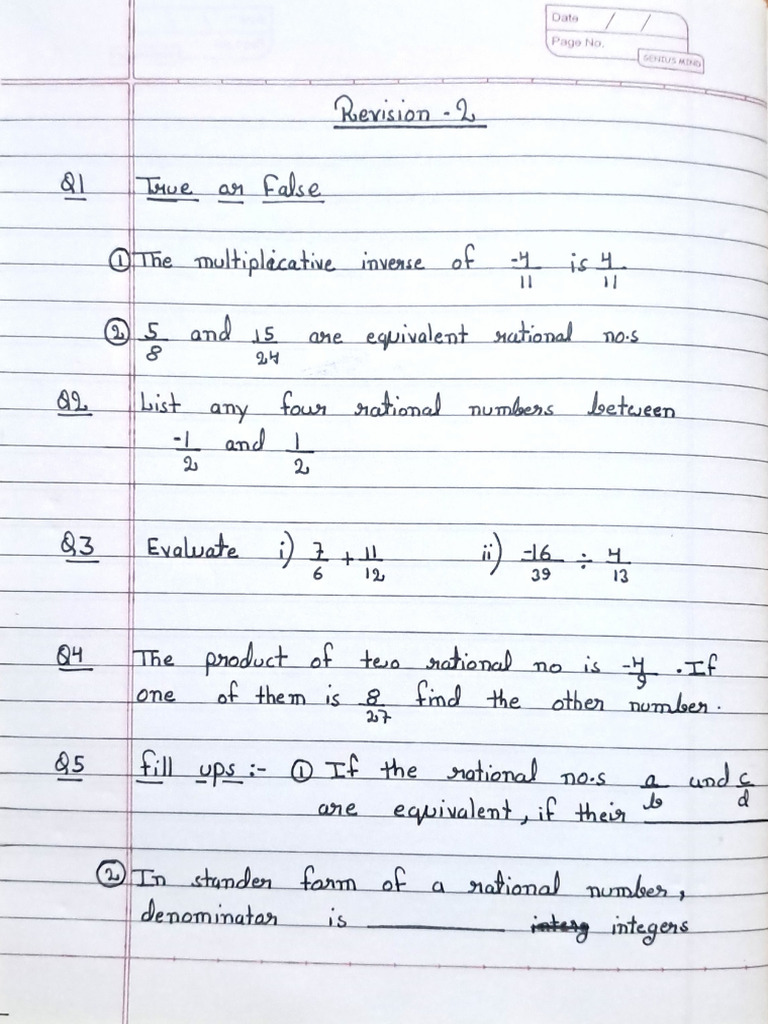 Date / /
Page No.
GENIUS MIND
Revision - 2
Q1 True or False
① The multiplicative inverse of -4/11 is 4/11
② 5/8 and 15/24 are equivalent rational no.s
Q2 List any four rational numbers between
-1/2 and 1/2
Q3 Evaluate i) 7/6 + 11/12 ii) -16/39 ÷ 4/13
Q4 The product of two rational no is -4/9 . If
one of them is 8/27 find the other number.
Q5 fill ups :- ① If the rational no.s a/b and c/d
are equivalent, if their ______
② In stander form of a rational number,
denominator is ______ integers